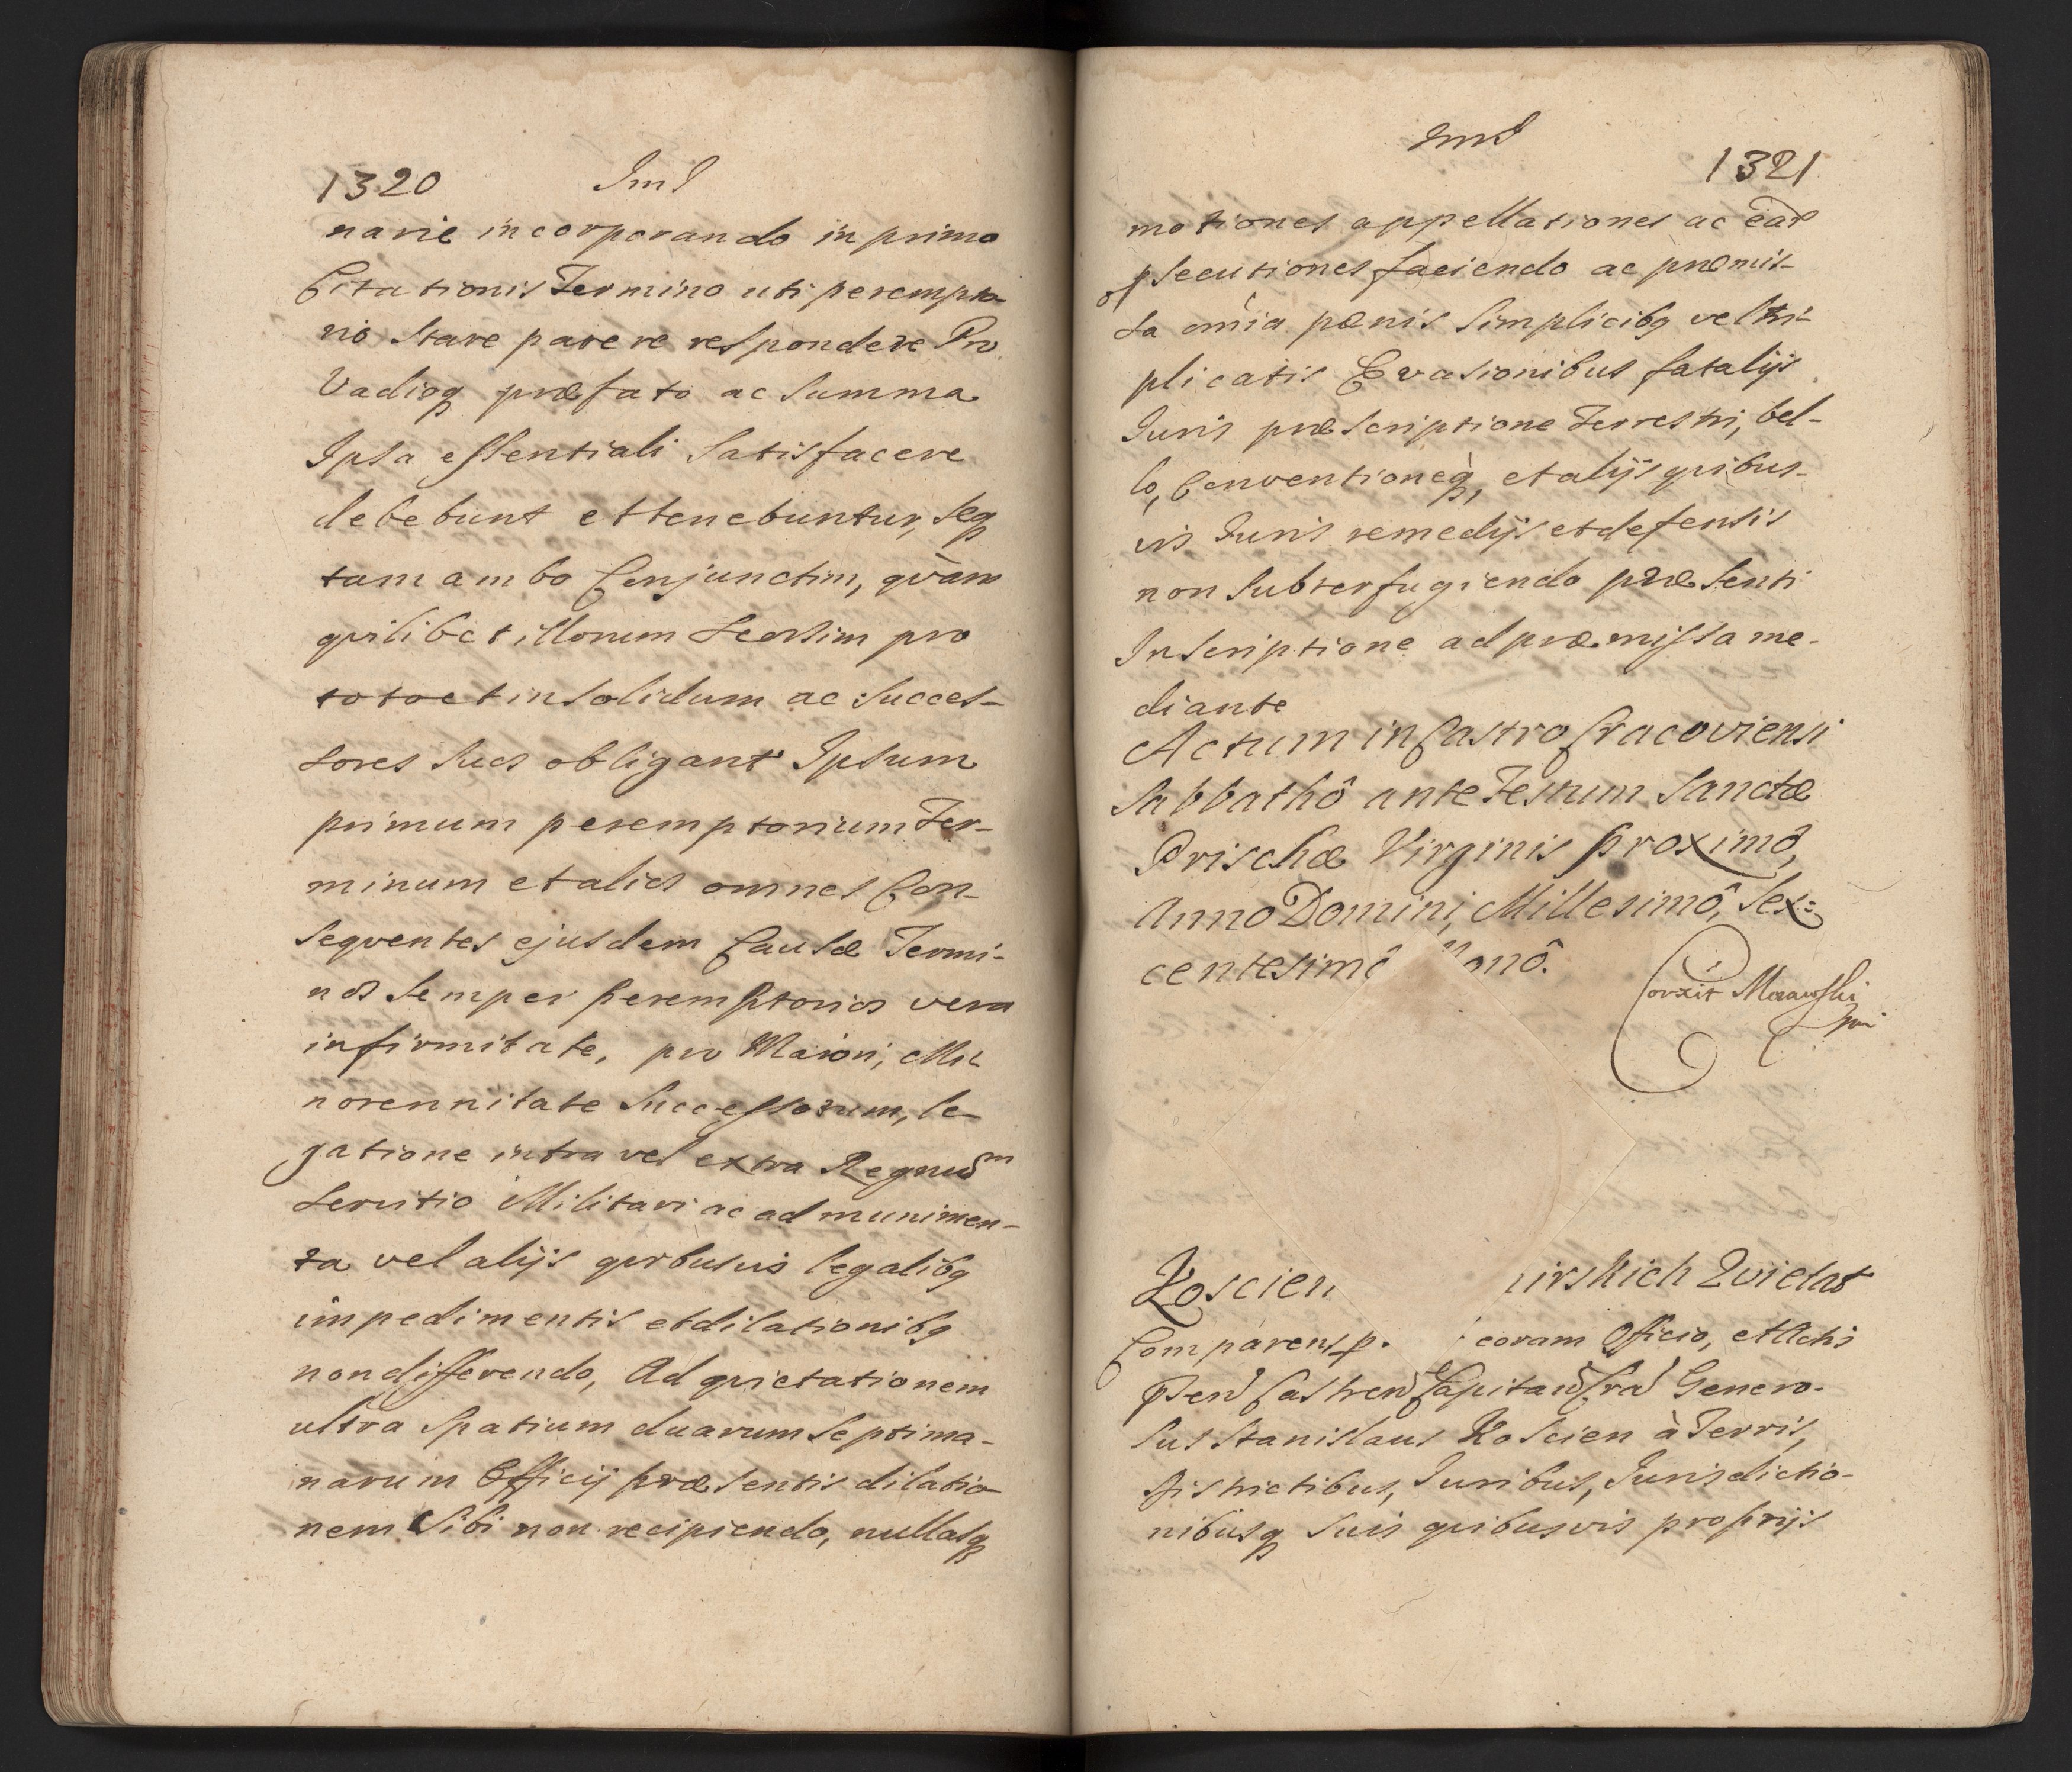 1320
Imd
narie incorporando in primo
Citationis Termino uti perempto-
rio Stare parere respondere Pro
Vadioq præfato ac Summa
Ipsa essentiali Satisfacere
debebunt et tenebuntur, Seq
tam ambo Conjunctim, qvàm
qvilibet illorum Seorsim pro
toto et in Solidum ac Succes-
sores Suos obligant Ipsum
primum peremptorium Ter-
minum et alios omnes Con-
seqventes ejusdem Causæ Termi-
nos Semper peremptorios vera
infirmitate, pro Maiori, Mi-
norennitate Successorum, le-
gatione intra vel extra Regnum
Servitio Militari ac ad munimen-
ta vel alijs qvibusvis legalibq
impedimentis et dilationibq
non differendo, Ad qvietationem
ultra Spatium duarum Septima-
narum Officij præsentis dilatio-
nem Sibi non recipiendo, nullasq
Imd
1321
motiones appellationes ac eārd
pSecutiones faciendo ac præmis-
sa om̄ia pænis Simplicibq vel tri-
plicatis Evasionibus fatalijs
Juris præscriptione Terrestri, bel-
lo, Conventioneq, et alijs qvibus-
vis Juris remedijs et defensis
non Subterfugiendo præsenti
Inscriptione ad præmissa me-
diante
Actum in Castro Cracoviensi
Sabbathô ante Festum Sanctæ
Prischæ Virginis proximô,
Anno Domini, Millesimô, Sex-
centesimô Nonô.
Corxit Morawski
mp
Koscien irskich Qvietat
Comparens p. coram Officio, et Actis
Pstn̄d Castren̄d Capitan̄d Crad Genero-
sus Stanislaus Koscien à Terris,
Districtibus, Juribus, Jurisdictio-
nibusq Suis qvibusvis proprijs